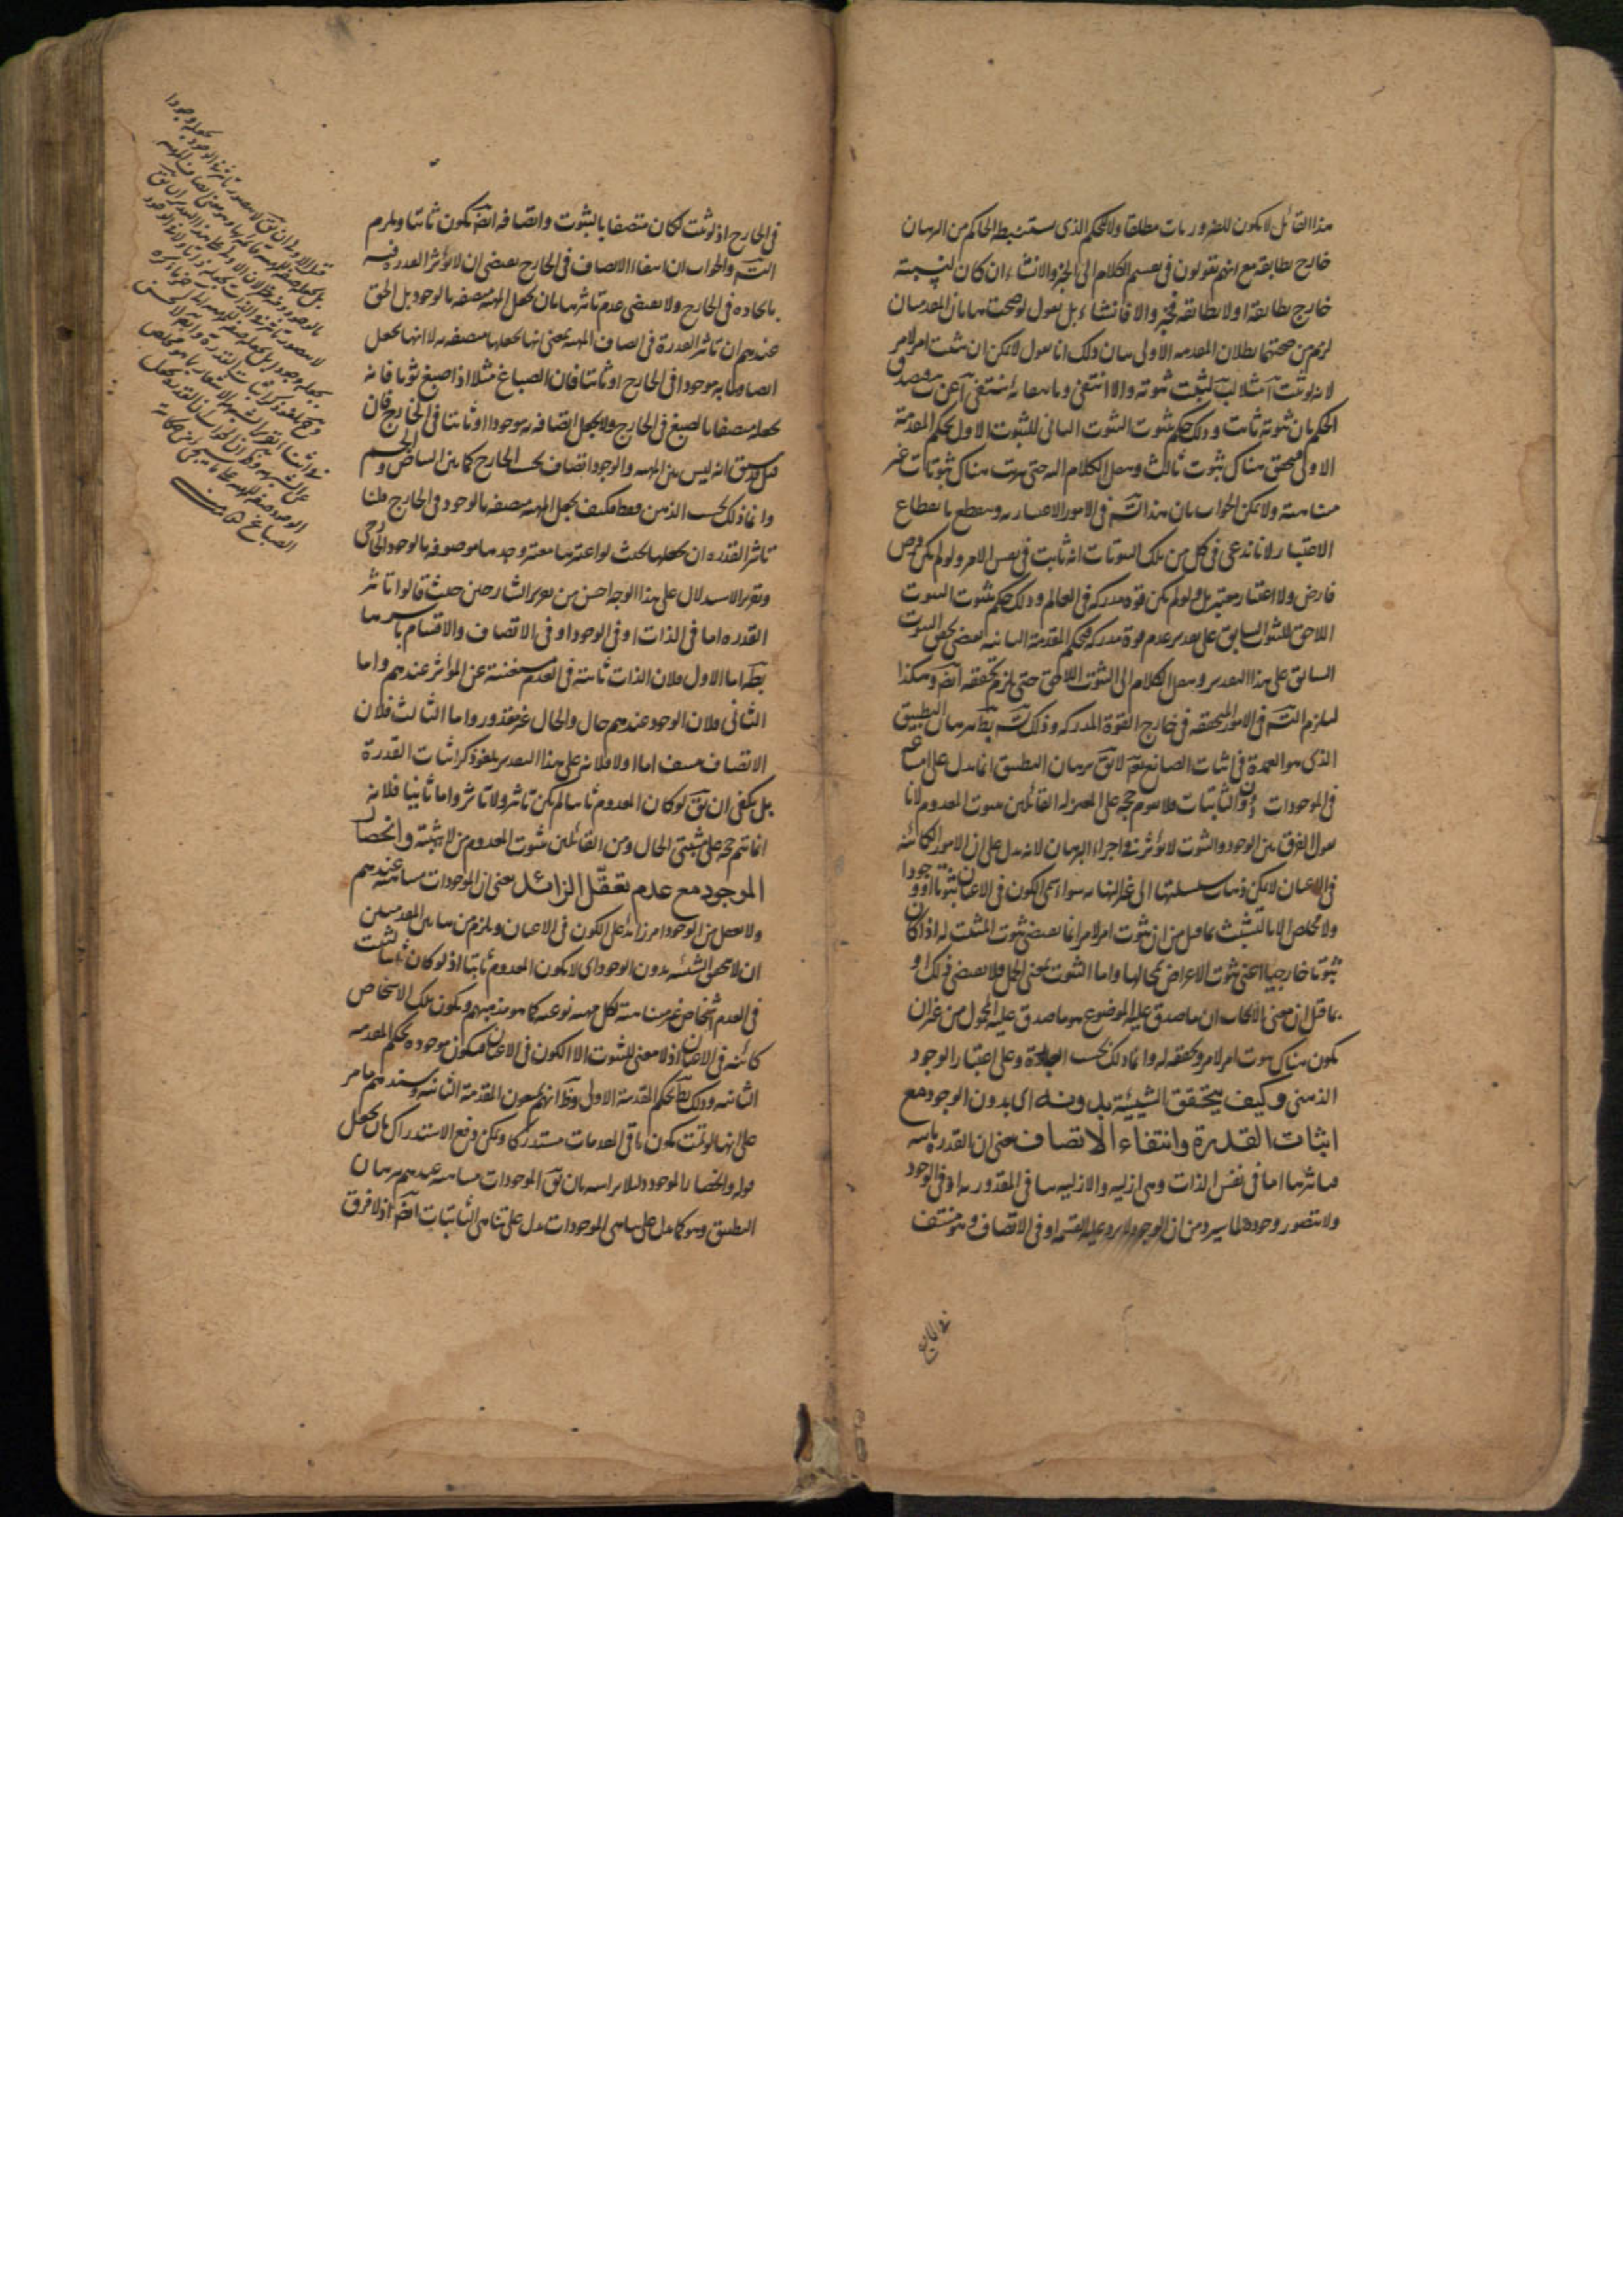 هذا القائل لا يكون للضروريات مطلقا ولا للحكم الذى يستنبطه الحاكم من البرهان
خارج يطابقه مع انهم يقولون فى تقسيم الكلام الى الخبر والانشاء ان كان لنسبته
خارج يطابقه او لا يطابقه فخبر والا فانشاء بل نقول لو صحت هاتان المقدمتان
لزم من صحتهما بطلان المقدمة الاولى بيان ذلك انا نقول لا يمكن ان يثبت امر لامر
لانه لو ثبت آ مثلا لب لثبت ثبوته والا انتفى وبانتفائه ينتفى آ عن ب فصدق
الحكم بان ثبوته ثابت وذلك حكم بثبوت الثبوت الثانى للثبوت الاول بحكم المقدمة
الاولى فتحقق هناك ثبوت ثالث وننقل الكلام اليه حتى يترتب هناك ثبوتات غير
متناهية ولا يمكن الجواب بان هذا التسـ فى الامور الاعتبارية وينقطع بانقطاع
الاعتبار لانا ندعى فى كل من تلك الثبوتات انه ثابت فى نفس الامر ولو لم يكن فرض
فارض ولا اعتبار معتبر بل ولو لم يكن قوة مدركة فى العالم وذلك حكم بثبوت الثبوت
اللاحق للثبوت السابق على تقدير عدم قوة مدركة فبحكم المقدمة الثانية يقتضى تحقق الثبوت
السابق على هذا التقدير وننقل الكلام الى الثبوت اللاحق حتى يلزم تحققه ايضـ وهكذا
ليلزم التسـ فى الامور المتحققة فى خارج القوة المدركة وذلك التسـ بطـ ببرهان التطبيق
الذى هو العمدة فى اثبات الصانع تعـ لا يقـ برهان التطبيق انما يدل على امتناعه
فى الموجودات دون الثابتات فلا يقوم حجة على المعتزلة القائلين بثبوت المعدوم لانا
نقول الفرق بين الوجود والثبوت لا يؤثر فى اجراء البرهان لانه يدل على ان الامور الكائنة
فى الاعيان لا يمكن ذهاب سلسلتها الى غير النهاية سواء سمى الكون فى الاعيان ثبوتا او وجودا
ولا مخلص الا بالتشبث بما قيل من ان ثبوت امر لامر انما يقتضى ثبوت المثبت له اذا كان
ثبوتا خارجيا اعنى ثبوت الاعراض لمحالها واما الثبوت بمعنى الحمل فلا يقتضى ذلك او
بما قيل ان معنى الايجاب ان ما صدق عليه الموضوع هو ما صدق عليه المحمول من غير ان
يكون هناك ثبوت امر لامر وتحققه له وانما ذلك بحسب العبارة وعلى اعتبار الوجود
الذهنى وكيف يتحقق الشيئية بدونه اى بدون الوجود مع
اثبات القدرة وانتفاء الاتصاف يعنى ان القدرة ثابتة
فتاثيرها اما فى نفس الذات وهى ازلية والازلية تنافى المقدورية او فى الوجود
ولا يتصور وجوده لما سيرد من ان الوجود لا يرد عليه القسمة او فى الاتصاف وهو منتف
فى الخارج
فى الخارج اذ لو ثبت لكان متصفا بالثبوت واتصافه ايضـ يكون ثابتا ويلزم
التسـ والجواب ان انتفاء الاتصاف فى الخارج يقتضى ان لا يؤثر القدرة فيه
بايجاده فى الخارج ولا يقتضى عدم تاثيرها بان يجعل المهية متصفة بالوجود بل الحق
عندهم ان تاثير القدرة فى اتصاف المهية بمعنى انها يجعلها متصفة به لا انها يجعل
اتصافها به موجودا فى الخارج او ثابتا فان الصباغ مثلا اذا صبغ ثوبا فانه
يجعله متصفا بالصبغ فى الخارج ولا يجعل اتصافه به موجودا او ثابتا فى الخارج فان
قيل قد سبق انه ليس بين المهية والوجود اتصاف بحسب الخارج كما بين البياض والجسم
وانما ذلك بحسب الذهن فقط فكيف يجعل المهية متصفة بالوجود فى الخارج قلنا
تاثير القدرة ان يجعلها بحيث لو اعتبرها معتبر وجدها موصوفة بالوجود الخارجى
وتقرير الاستدلال على هذا الوجه احسن من تقرير الشارحين حيث قالوا تاثير
القدرة اما فى الذات او فى الوجود او فى الاتصاف والاقسام باسرها
بطـ اما الاول فلان الذات ثابتة فى العدم مستغنية عن المؤثر عندهم واما
الثانى فلان الوجود عندهم حال والحال غير مقدور واما الثالث فلان
الاتصاف منتف اما اولا فلانه على هذا التقدير يلغو ذكر اثبات القدرة
بل يكفى ان يقـ لو كان المعدوم ثابتا لم يكن تاثير ولا تاثر واما ثانيا فلانه
انما يتم حجة على مثبتى الحال ومن القائلين بثبوت المعدوم من لا يثبته وانحصار
الموجود مع عدم تعقل الزائد يعنى ان الموجودات متناهية عندهم
ولا يعقل من الوجود امر زائد على الكون فى الاعيان ويلزم من هاتين المقدمتين
ان لا يتحقق الشيئية بدون الوجود اى لا يكون المعدوم ثابتا اذ لو كان ثابتا لثبت
فى العدم اشخاص غير متناهية لكل مهية نوعية كما هو مذهبهم ويكون تلك الاشخاص
كائنة فى الاعيان اذ لا معنى للثبوت الا الكون فى الاعيان فيكون موجودة بحكم المقدمة
الثانية وذلك بطـ بحكم المقدمة الاولى وظـ انهم يمنعون المقدمة الثانية وسندهم ما مر
على انها لو تمت يكون باقى المقدمات مستدركا ويمكن دفع الاستدراك بان يجعل
قوله وانحصار الموجود دليلا براسه بان يقـ الموجودات متناهية عندهم ببرهان
التطبيق وهو كما يدل على تناهى الموجودات يدل على تناهى الثابتات ايضـ اذ لا فرق